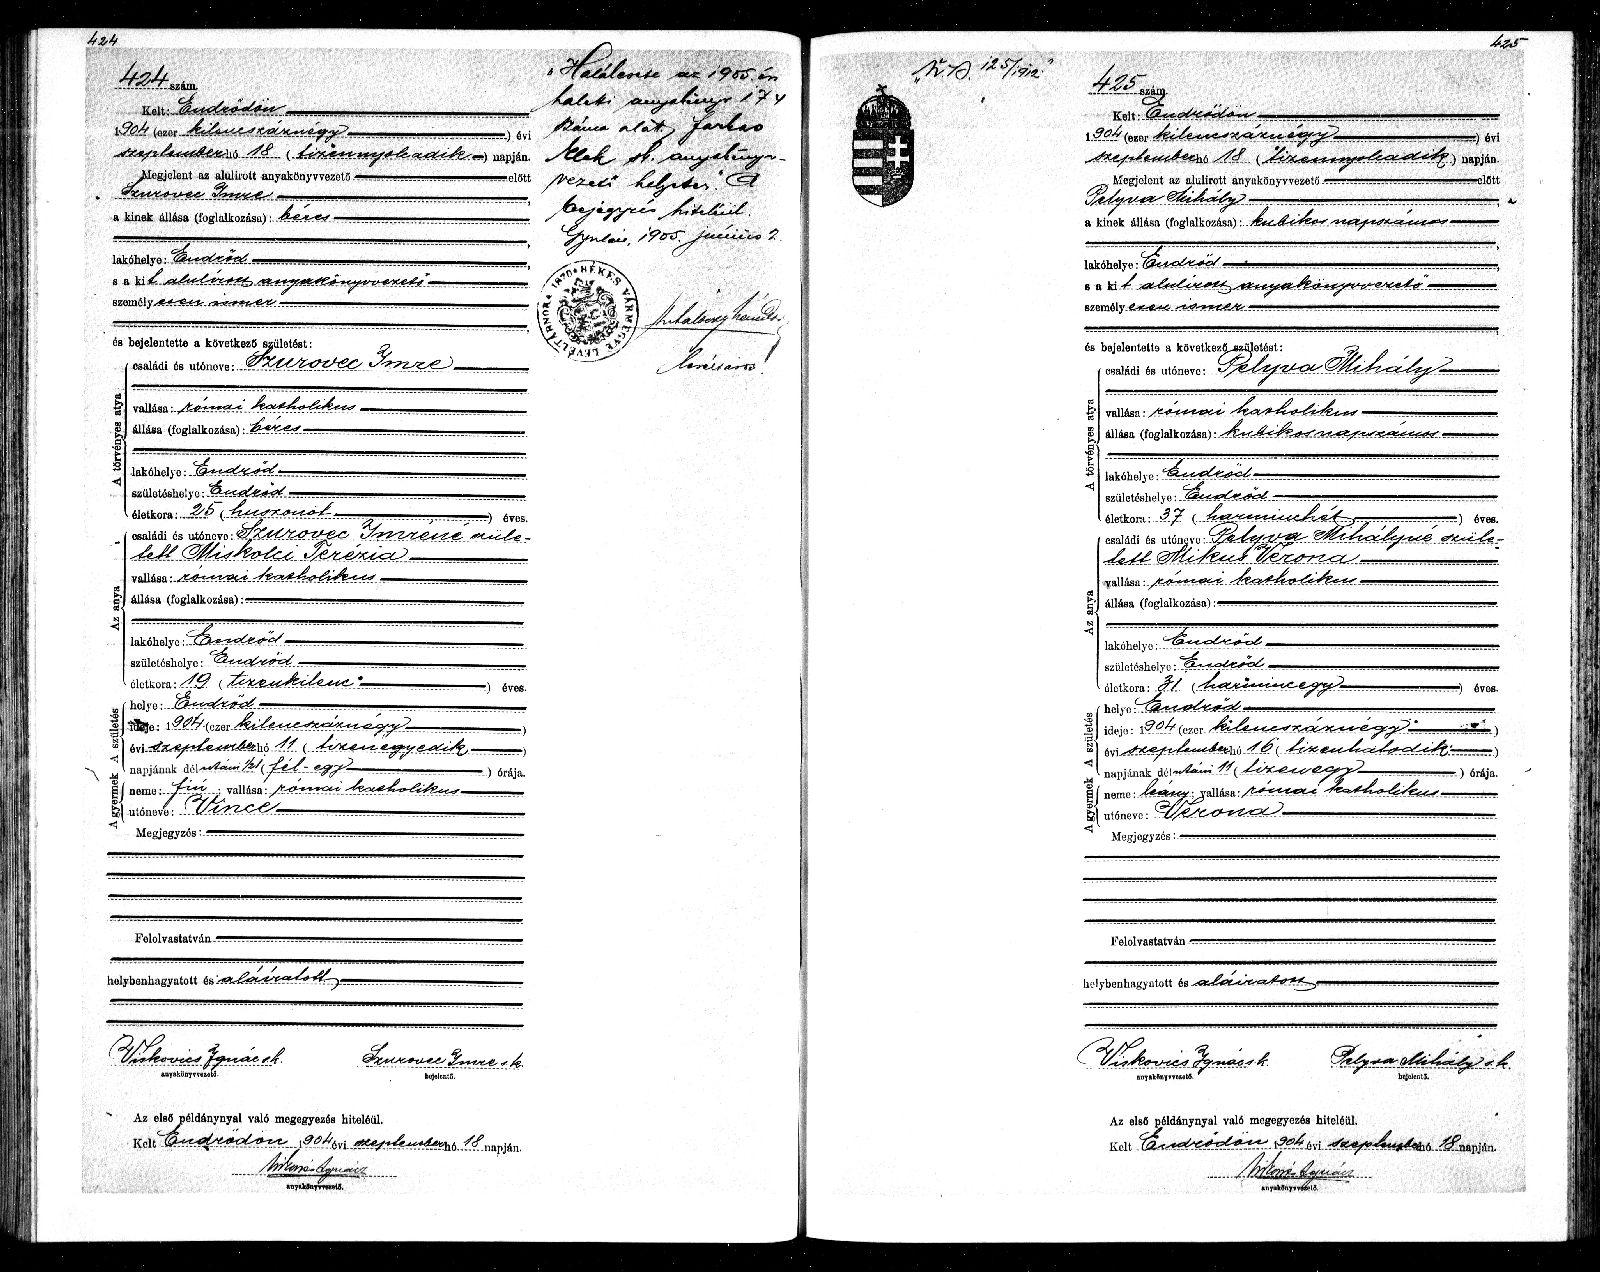 424
424 szám.
Kelt: Endrődön
1904 (ezer kilencszáznégy) évi
szeptember hó 18 (tizennyolcadik) napján.
Megjelent az alulirott anyakönyvvezető előtt
Szurovec Imre
a kinek állása (foglalkozása): béres
lakóhelye: Endrőd
s a kit alulírott anyakönyvvezető
személyesen ismer
és bejelentette a következő születést:
A törvényes atya
családi és utóneve: Szurovec Imre
vallása: római katholikus
állása (foglalkozása): béres
lakóhelye: Endrőd
születéshelye: Endrőd
életkora: 25 (huszonöt) éves.
Az anya
családi és utóneve: Szurovec Imréné szüle-
tett Miskolci Terézia
vallása: római katholikus
állása (foglalkozása):
lakóhelye: Endrőd
születéshelye: Endrőd
életkora: 19 (tizenkilenc) éves.
A gyermek A születés
helye: Endrőd
ideje: 1904 (ezer kilencszáznégy)
évi szeptember hó 11 (tizenegyedik)
napjának délutáni ½1 (fél-egy) órája.
neme: fiú; vallása: római katholikus
utóneve: Vince
Megjegyzés:
Felolvastatván
helybenhagyatott és aláíratott
Viskovics Ignác sk. Szurovec Imre s k.
anyakönyvvezető. bejelentő.
Az első példánynyal való megegyezés hiteléül.
Kelt Endrődön 1904 évi szeptember hó 18 napján.
anyakönyvvezető.
"Halálesete az 1905. én
haláti anyakönyv 174
száma alatt, Farkas
st. anyakönyv-
vezető helyttes".
bejegyzés hiteléül.
Gyulán, 1905. június 2.
1870 BÉKES VÁRMEGYE LEVÉLTÁRNOKA
425
"N.A. 125/1912"
425 szám
Kelt: Endrődön
1904 (ezer kilencszáznégy) évi
szeptember hó 18 (tizennyolcadik) napján.
Megjelent az alulirott anyakönyvvezető előtt
Pelyva Mihály
a kinek állása (foglalkozása): kubikos napszámos
lakóhelye: Endrőd
s a kit alulírott anyakönyvvezető
személyesen ismer
és bejelentette a következő születést:
A törvényes atya
családi és utóneve: Pelyva Mihály
vallása: római katholikus
állása (foglalkozása): kubikos napszámos
lakóhelye: Endrőd
születéshelye: Endrőd
életkora: 37 (harminchét) éves.
Az anya
családi és utóneve: Pelyva Mihályné szüle-
tett Mikus Verona
vallása: római katholikus
állása (foglalkozása):
lakóhelye: Endrőd
születéshelye: Endrőd
életkora: 31 (harmincegy) éves.
A gyermek A születés
helye: Endrőd
ideje: 1904 (ezer kilencszáznégy)
évi szeptember hó 16 (tizenhatodik)
napjának délutáni 11 (tizenegy) órája.
neme: leány; vallása: római katholikus
utóneve: Verona
Megjegyzés:
Felolvastatván
helybenhagyatott és aláíratott
Viskovics Ignác sk. Pelyva Mihály s.k.
anyakönyvvezető. bejelentő.
Az első példánynyal való megegyezés hiteléül.
Kelt Endrődön 1904 évi szeptember hó 18 napján.
anyakönyvvezető.